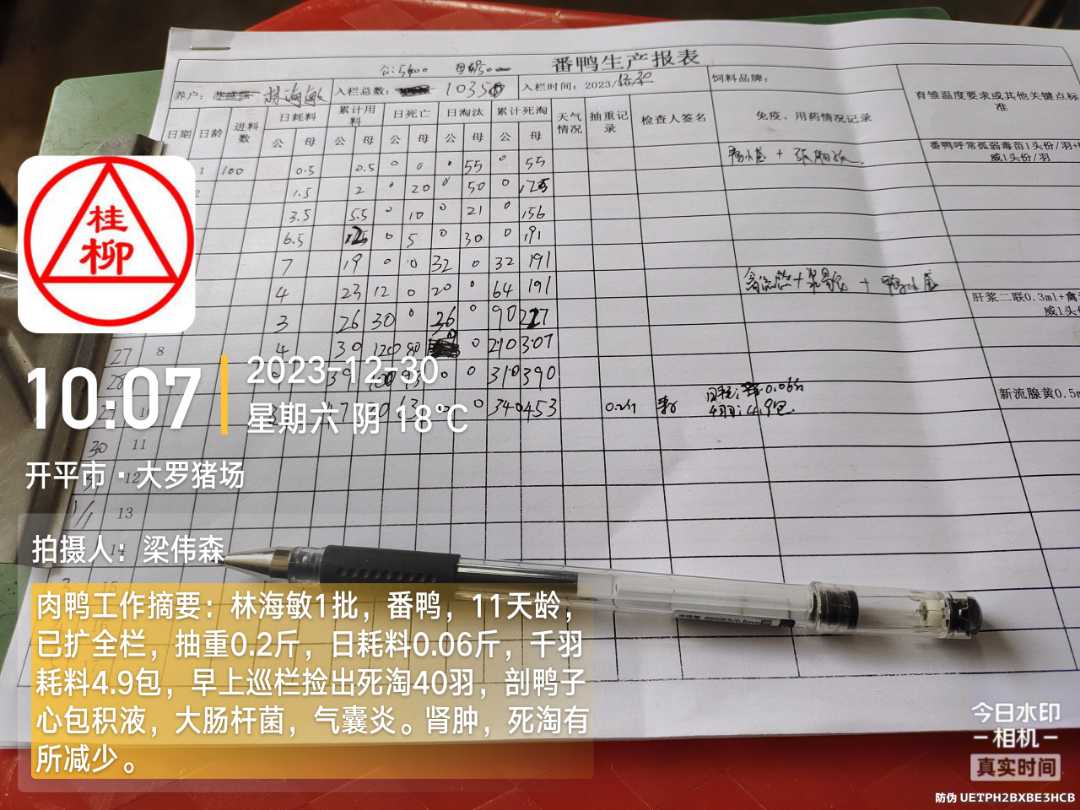 番鸭生产报表
养户：
林海敏
入栏总数：
10350
入栏时间：2023/
饲料品牌：
日期
日龄
进料数
日耗料
累计用料
日死亡
日淘汰
累计死淘
天气情况
抽重记录
检查人签名
免疫、用药情况记录
育雏温度要求或其他关键点标准
公 母 公 母 公 母 公 母
1 100 0.5 0.5 0 0 0 55 0 55
1.5 2 0 20 0 50 0 125
3.5 5.5 0 10 0 21 0 156
6.5 0 5 0 30 0 191
7 19 0 0 32 0 32 191
4 23 12 0 20 0 64 191
3 26 30 0 0 90
27 8 4 30 0 210 307
28 0 310 390
10 0 340 453
30 11
12
1/1 13
番鸭呼常弧弱毒苗1头份/羽+
威1头份/羽
肝浆二联0.3ml+禽
威1头
新流腺黄0.5m
桂柳
10:07
2023-12-30
星期六 阴 18℃
开平市·大罗猪场
拍摄人：梁伟森
肉鸭工作摘要：林海敏1批，番鸭，11天龄，
已扩全栏，抽重0.2斤，日耗料0.06斤，千羽
耗料4.9包，早上巡栏捡出死淘40羽，剖鸭子
心包积液，大肠杆菌，气囊炎。肾肿，死淘有
所减少。
今日水印
相机
真实时间
防伪 UETPH2BXBE3HCB